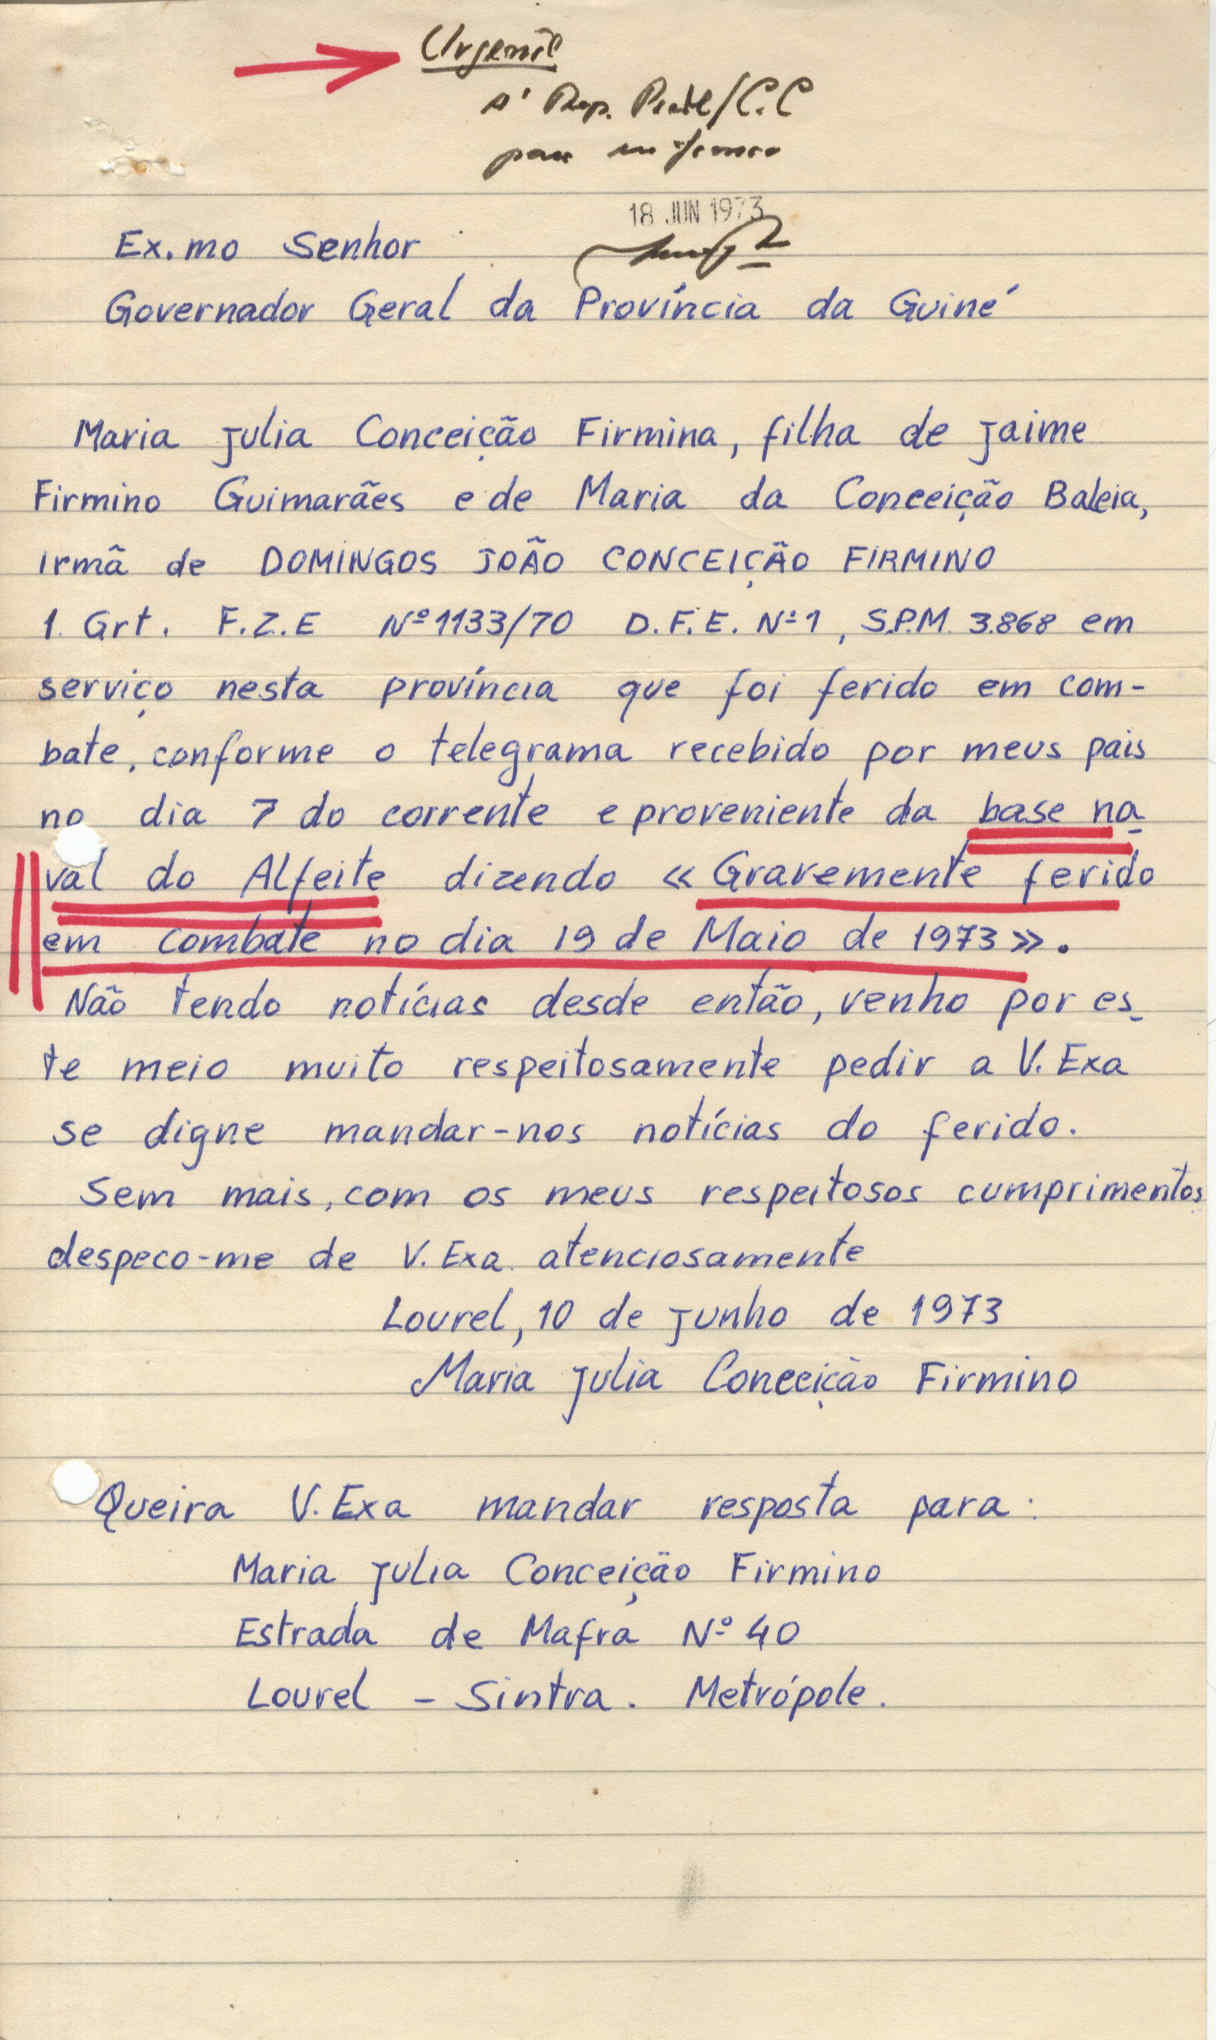 Urgente
à Rep. /C.C
para
18 JUN 1973
Ex.mo Senhor
Governador Geral da Província da Guiné
Maria Julia Conceição Firmina, filha de Jaime
Firmino Guimarães e de Maria da Conceição Baleia,
irmã de DOMINGOS JOÃO CONCEIÇÃO FIRMINO
1. Grt. F.Z.E Nº 1133/70 D.F.E. Nº 1, S.P.M. 3.868 em
serviço nesta província que foi ferido em com-
bate, conforme o telegrama recebido por meus pais
no dia 7 do corrente e proveniente da base na-
val do Alfeite dizendo «Gravemente ferido
em combate no dia 19 de Maio de 1973».
Não tendo notícias desde então, venho por es-
te meio muito respeitosamente pedir a V. Exa
se digne mandar-nos notícias do ferido.
Sem mais, com os meus respeitosos cumprimentos
despeco-me de V. Exa. atenciosamente
Lourel, 10 de Junho de 1973
Maria Julia Conceição Firmino
Queira V. Exa mandar resposta para:
Maria Julia Conceição Firmino
Estrada de Mafra Nº 40
Lourel - Sintra. Metrópole.